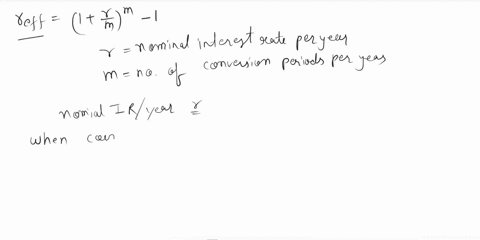 r_eff = (1 + r/m)^m - 1
r = nominal interest rate per year
m = no. of conversion periods per year
nomial IR/year r
when com